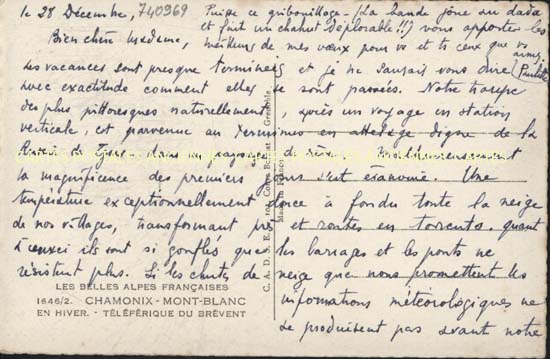 le 28 Décembre, 740969
Puisse ce gribouillage (la bande joue au dada
et fait un chahut déplorable !!!) vous apporter les
Bien chère Madame, meilleurs de mes vœux pour vs et ts ceux que vs aimez
Paulette
Les vacances sont presque terminées et je ne saurais vous dire
avec exactitude comment elles se sont passées. Notre troupe
des plus pittoresques naturellement, après un voyage en station
verticale, est parvenue au terminus en attelage digne de la
dans un paysage de rêve. Malheureusement
la magnificence des premiers jours s'est évanouie. Une
température exceptionnellement douce a fondu toute la neige
de nos villages, transformant prés et routes en torrents. quant
à ceux-ci ils sont si gonflés que les barrages et les ponts ne
résistent plus. Si les chutes de neige que nous promettent les
informations météorologiques ne
se produisent pas avant notre
LES BELLES ALPES FRANÇAISES
1646/2. CHAMONIX-MONT-BLANC
EN HIVER. - TÉLÉFÉRIQUE DU BRÉVENT